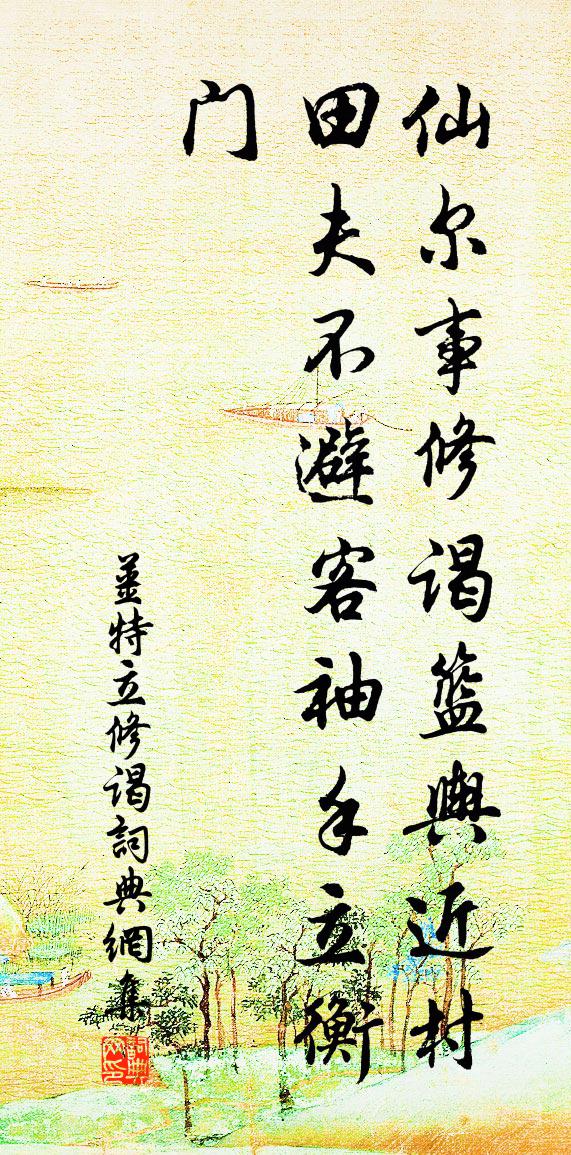 仙尔事修谒篮舆近村
田夫不避客袖手立衡
门
姜特立修谒詞典網集